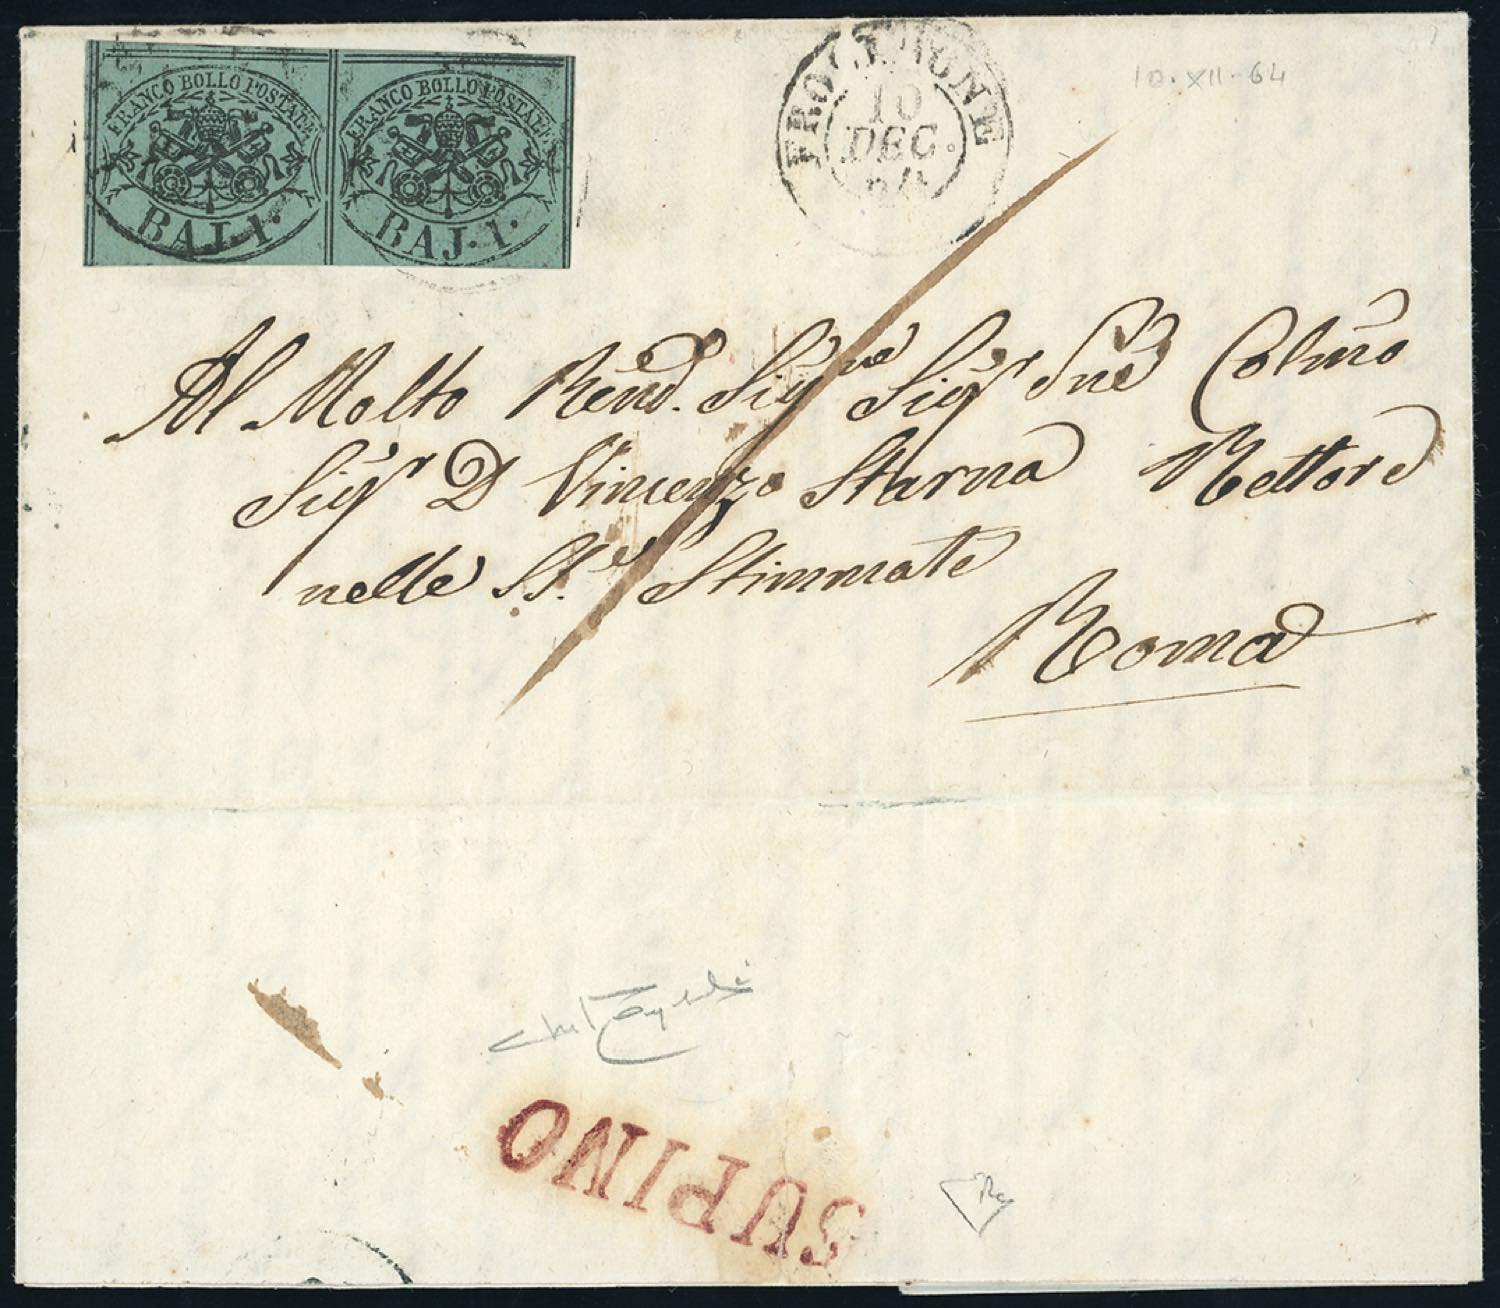 FRANCO BOLLO POSTALE
BAJ. 1.
FRANCO BOLLO POSTALE
BAJ. 1.
FROSINONE
10
DEC.
64
10. XII. 64
Al Molto Rend. Sigre Sigr Sne Colmo
Sigr D Vincenzo Starna Rettore
nelle SS.e Stimmate
Roma
SUPINO